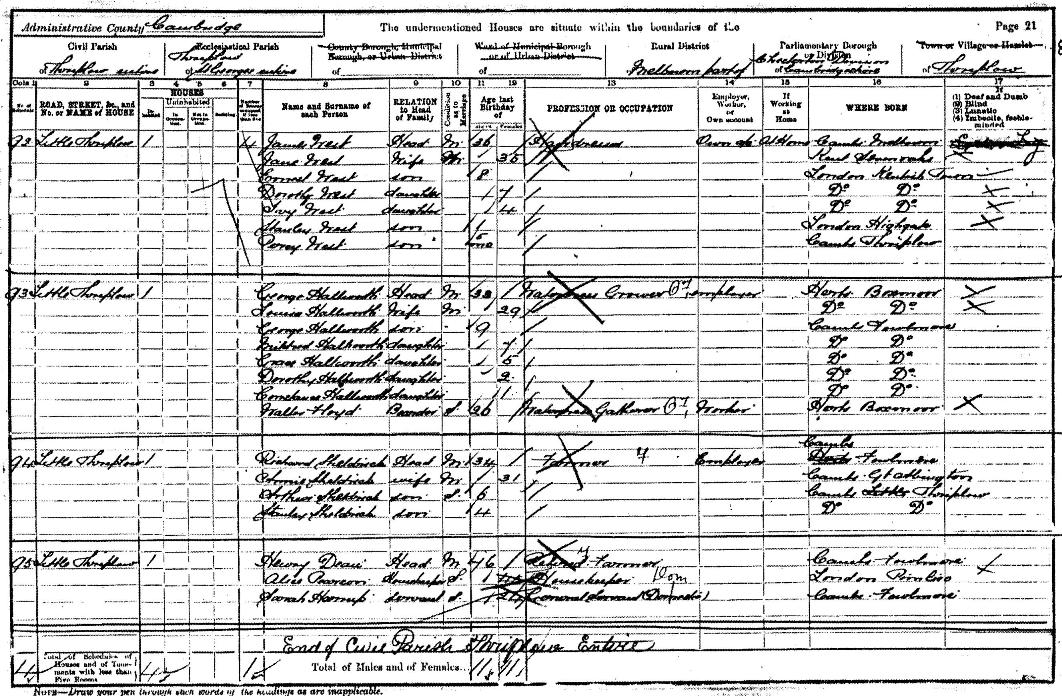 Administrative County Cambridge The undermentioned Houses are situate within the boundaries of the Page 21
Civil Parish Ecclesiastical Parish County Borough, Municipal Borough, or Urban District Ward of Municipal Borough or of Urban District Rural District Parliamentary Borough or Division Town or Village or Hamlet
of Thriplow entire of Thriplow St Georges entire of of Melbourn part of of Chesterton Division Cambridgeshire of Thriplow
Cols 1 2 3 4 5 6 7 8 9 10 11 12 13 14 15 16 17
ROAD, STREET, &c., and No. or NAME of HOUSE HOUSES Uninhabited Name and Surname of each Person RELATION to Head of Family Condition as to Marriage Age last Birthday of PROFESSION OR OCCUPATION Employer, Worker, or Own account If Working at Home WHERE BORN (1) Deaf and Dumb (2) Blind (3) Lunatic (4) Imbecile, feeble-minded
92 Little Thriplow 1 4 James West Head M 36 Own ac At Home Cambs Melbourn
Jane West Wife M 35 Kent Sevenoaks
Ernest West son 8 London Kentish Town
Dorothy West daughter 7 Do Do
Ivy West daughter 4 Do Do
Stanley West son 1 London Highgate
Percy West son Cambs Thriplow
93 Little Thriplow 1 George Hallworth Head M 32 Watercress Grower employer Herts Boxmoor
Louisa Hallworth Wife M 29 Do Do
George Hallworth son 9 Cambs Fowlmere
Mildred Hallworth daughter 7 Do Do
Grace Hallworth daughter 5 Do Do
Dorothy Hallworth daughter 2 Do Do
Constance Hallworth daughter 1 Do Do
Walter Floyd Boarder S 26 Watercress Gatherer Worker Herts Boxmoor
94 Little Thriplow 1 Richard Sheldrick Head M 34 Farmer Employer Cambs Fowlmere
Annie Sheldrick wife M 31 Cambs Gt Abington
Arthur Sheldrick son S 6 Cambs Little Thriplow
Stanley Sheldrick son 4 Do Do
95 Little Thriplow 1 Henry Dean Head M 46 Retired Farmer Cambs Fowlmere
Alice Pearson Housekeeper S Housekeeper Dom London Pimlico
Sarah Harrup servant S General Servant (Domestic) Cambs Fowlmere
End of Civil Parish Thriplow Entire
Total of Schedules of Houses and of Tenements with less than Five Rooms 4 4 Total of Males and of Females... 11 11
NOTE—Draw your pen through such words of the headings as are inapplicable.